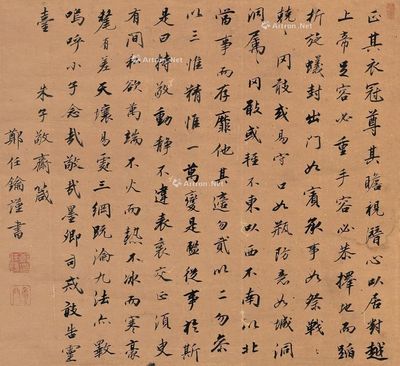 正其衣冠尊其瞻視潛心以居對越
上帝足容必重手容必恭擇地而蹈
折旋蟻封出門如賓承事如祭戰:
兢:罔敢或易守口如瓶防意如城洞
洞屬:罔敢或輕不東以西不南以北
當事而存靡他其適勿貳以二勿參
以三惟精惟一萬變是監從事於斯
是曰持敬動靜不違表裏交正須臾
有間私欲萬端不火而熱不冰而寒毫
釐有差天壤易處三綱既淪九法亦斁
嗚呼小子念哉敬哉墨卿司戒敢告靈
臺　朱子敬齋箴
鄭任鑰謹書